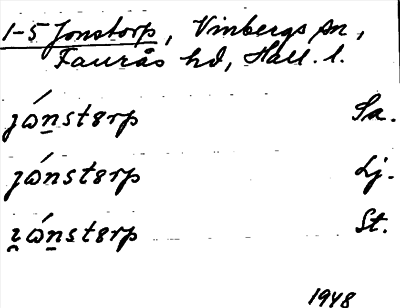 1-5 Jonstorp, Vinbergs sn,
Faurås hd, Hall. l.
jώn̲stɐrp Sa.
jώnstɐrp Lj.
ı̯ώn̲stɐrp St.
1948